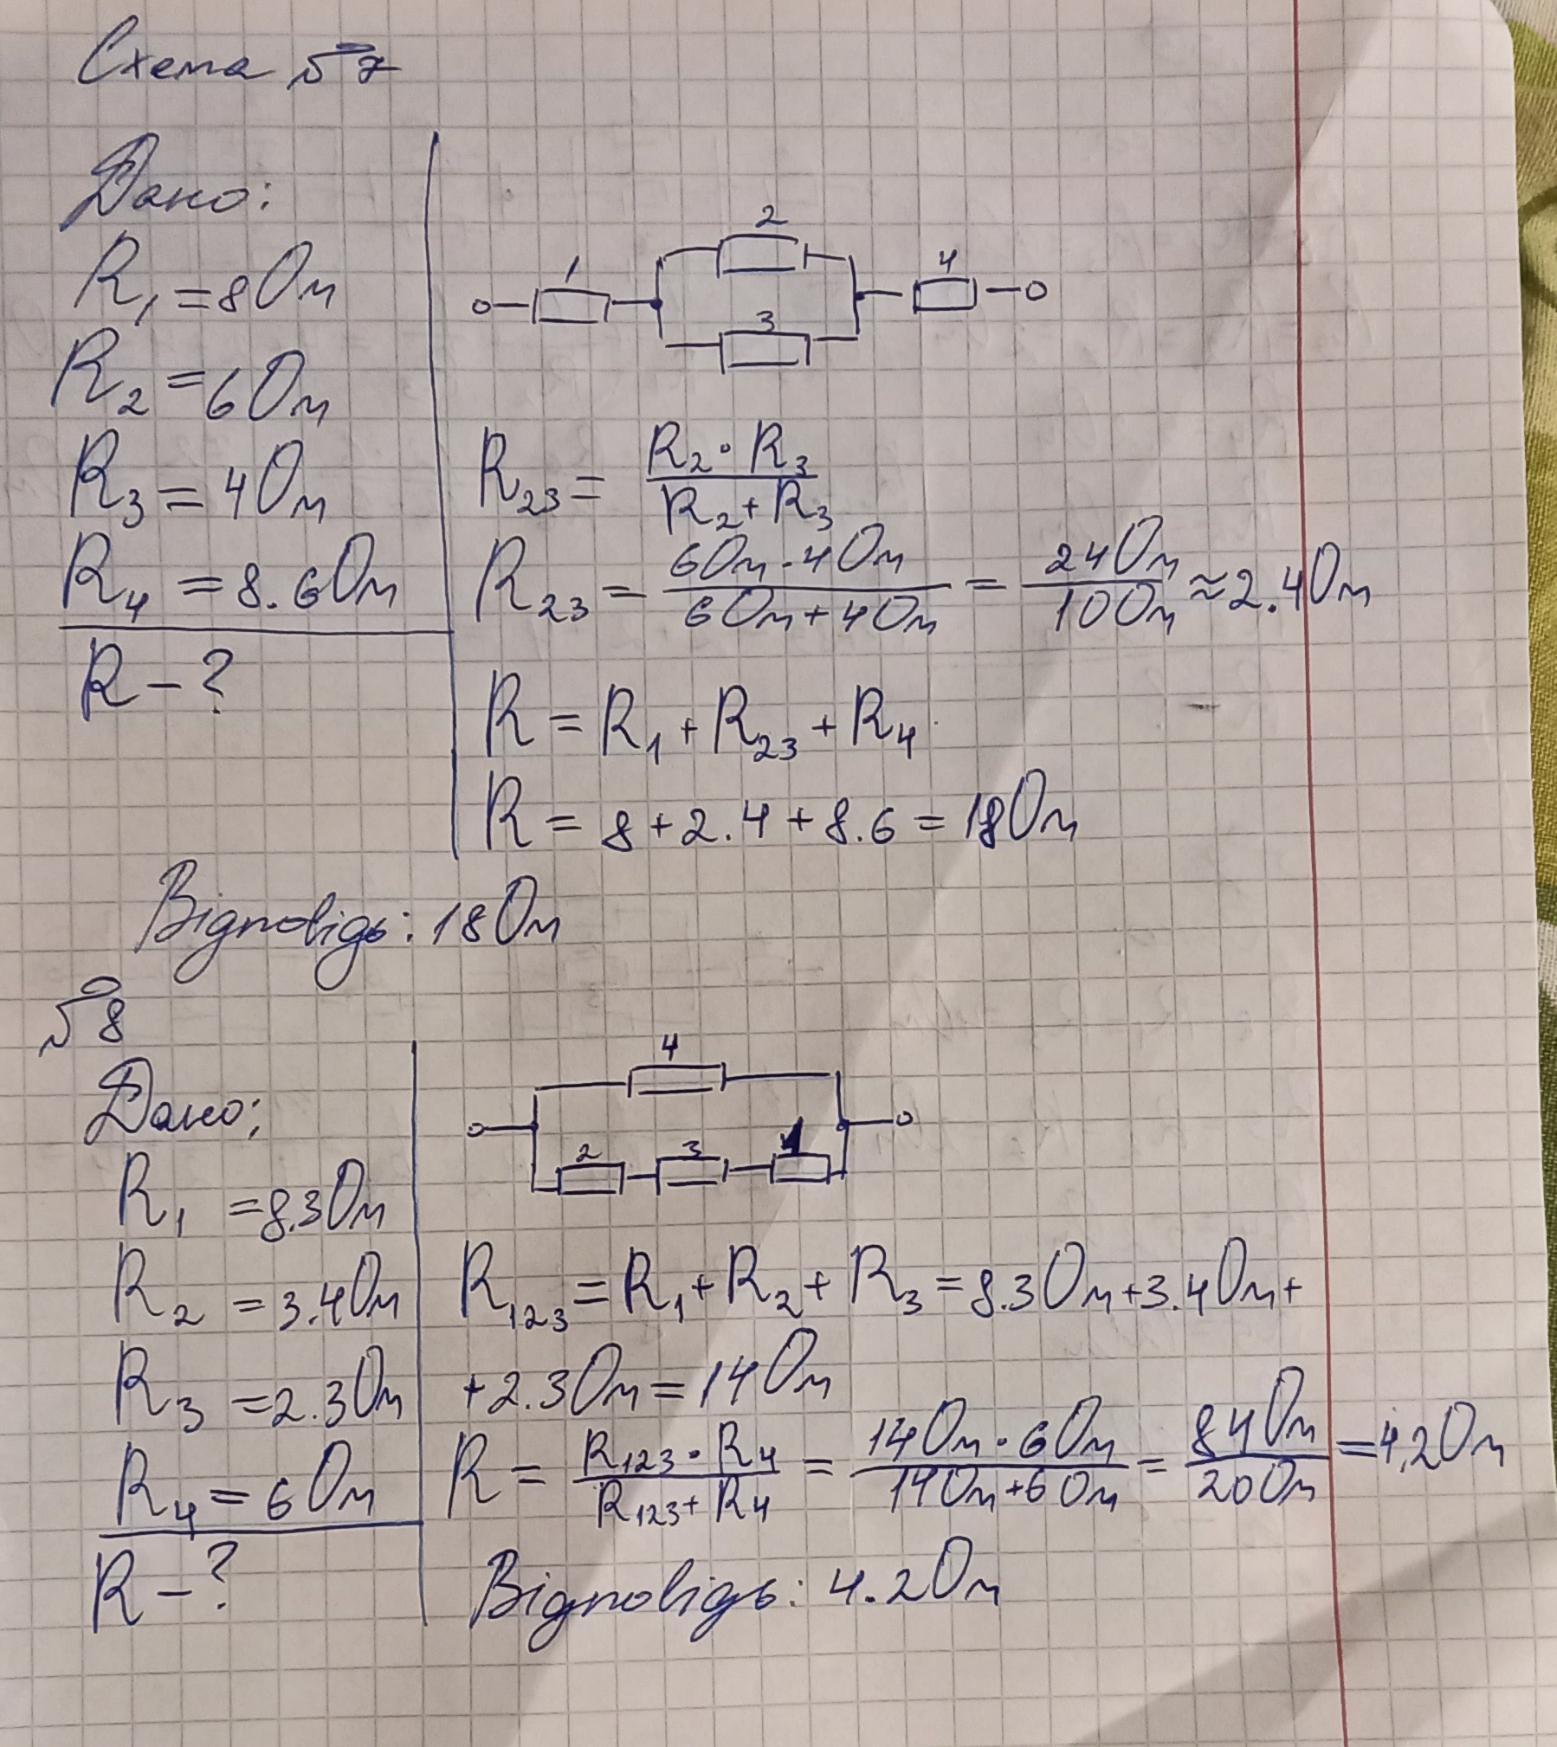 Схема №7
Дано:
R₁ = 8 Ом
R₂ = 6 Ом
R₃ = 4 Ом
R₄ = 8.6 Ом
R - ?
1 2 3 4
R₂₃ = (R₂ · R₃) / (R₂ + R₃)
R₂₃ = (6 Ом · 4 Ом) / (6 Ом + 4 Ом) = 24 Ом / 10 Ом ≈ 2.4 Ом
R = R₁ + R₂₃ + R₄
R = 8 + 2.4 + 8.6 = 18 Ом
Відповідь: 18 Ом
№8
Дано:
R₁ = 8.3 Ом
R₂ = 3.4 Ом
R₃ = 2.3 Ом
R₄ = 6 Ом
R - ?
4
2 3 1
R₁₂₃ = R₁ + R₂ + R₃ = 8.3 Ом + 3.4 Ом +
+ 2.3 Ом = 14 Ом
R = (R₁₂₃ · R₄) / (R₁₂₃ + R₄) = (14 Ом · 6 Ом) / (14 Ом + 6 Ом) = 84 Ом / 20 Ом = 4,2 Ом
Відповідь: 4.2 Ом